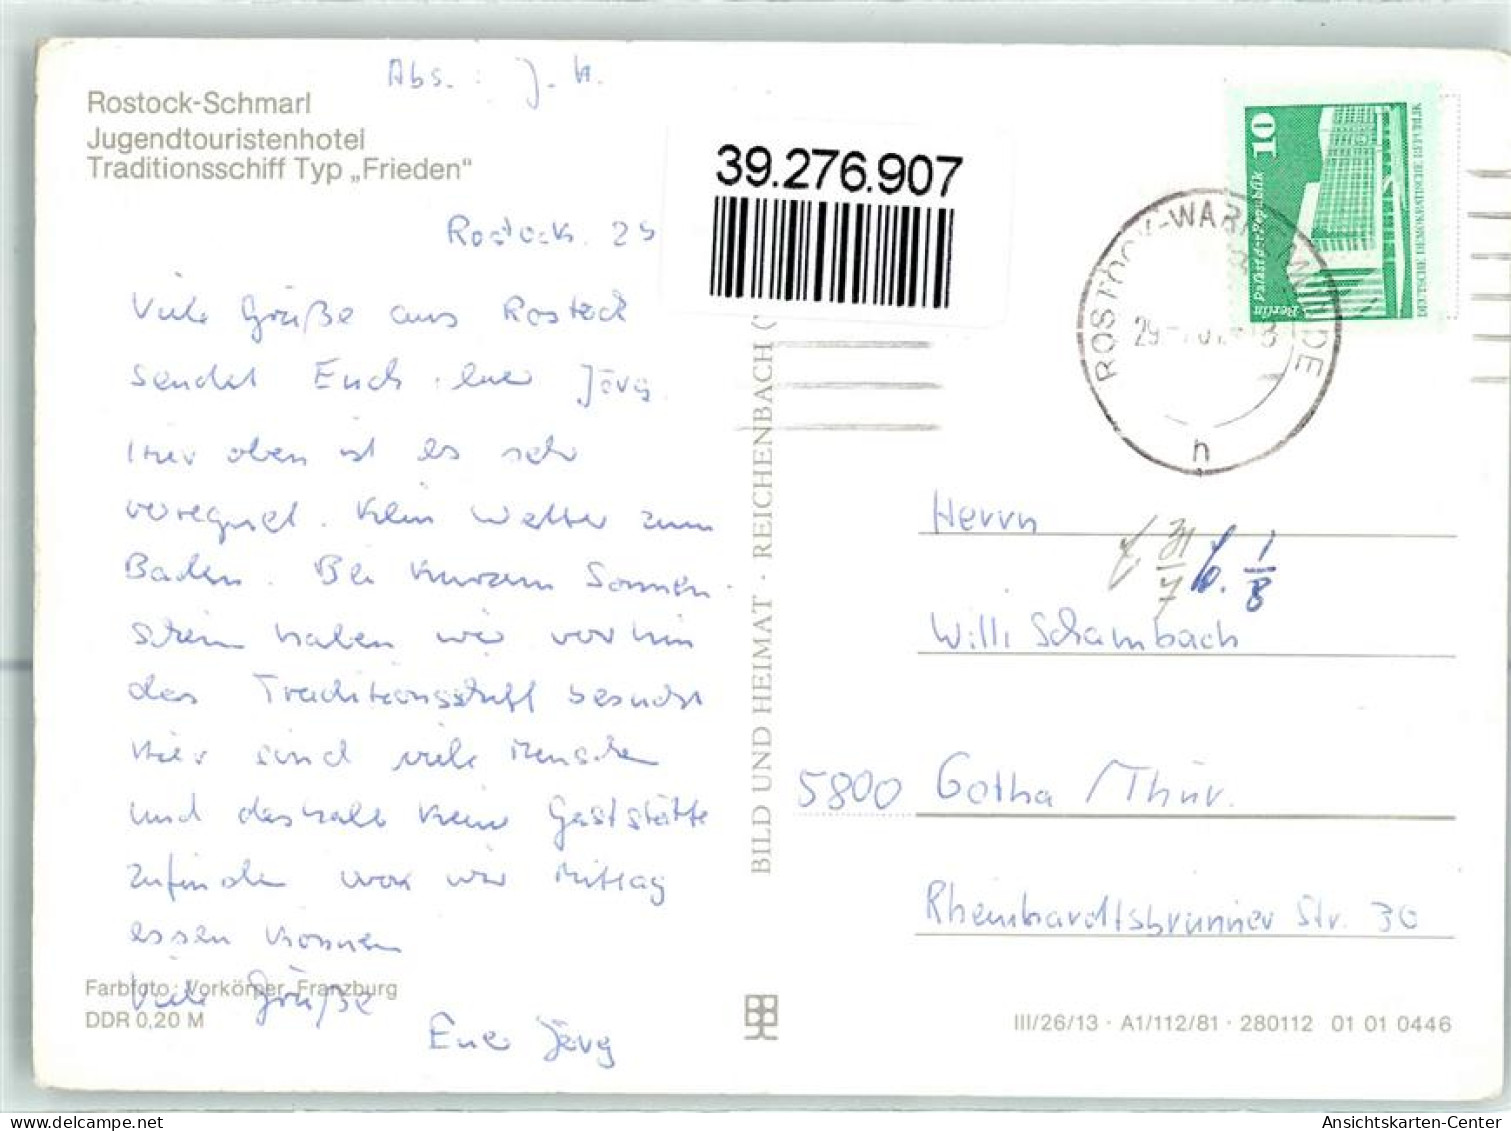 Abs.: J. H.
Rostock-Schmarl
Jugendtouristenhotel
Traditionsschiff Typ „Frieden“
39.276.907
10
Palast der Republik
Berlin
DEUTSCHE DEMOKRATISCHE REPUBLIK
ROSTOCK-WARNEMÜNDE
n
Rostock. 29
Viele Grüße aus Rostock
sendet Euch euer Jörg.
Hier oben ist es sehr
veregnet. Kein Wetter zum
Baden. Bei kurzem Sonnen-
schein haben wir vorhin
das Traditionsschiff besucht
Hier sind viele Menschen
und deshalb keine Gaststätte
zufinden wo wir Mittag
essen können
Viele Grüße
Euer Jörg
BILD UND HEIMAT · REICHENBACH (
Herrn
31/7 1/8
Willi Schambach
5800 Gotha /Thür.
Rheinhardtsbrunner Str. 30
Farbfoto: Vorkörper, Franzburg
DDR 0,20 M
III/26/13 · A1/112/81 · 280112 01 01 0446
Ansichtskarten-Center